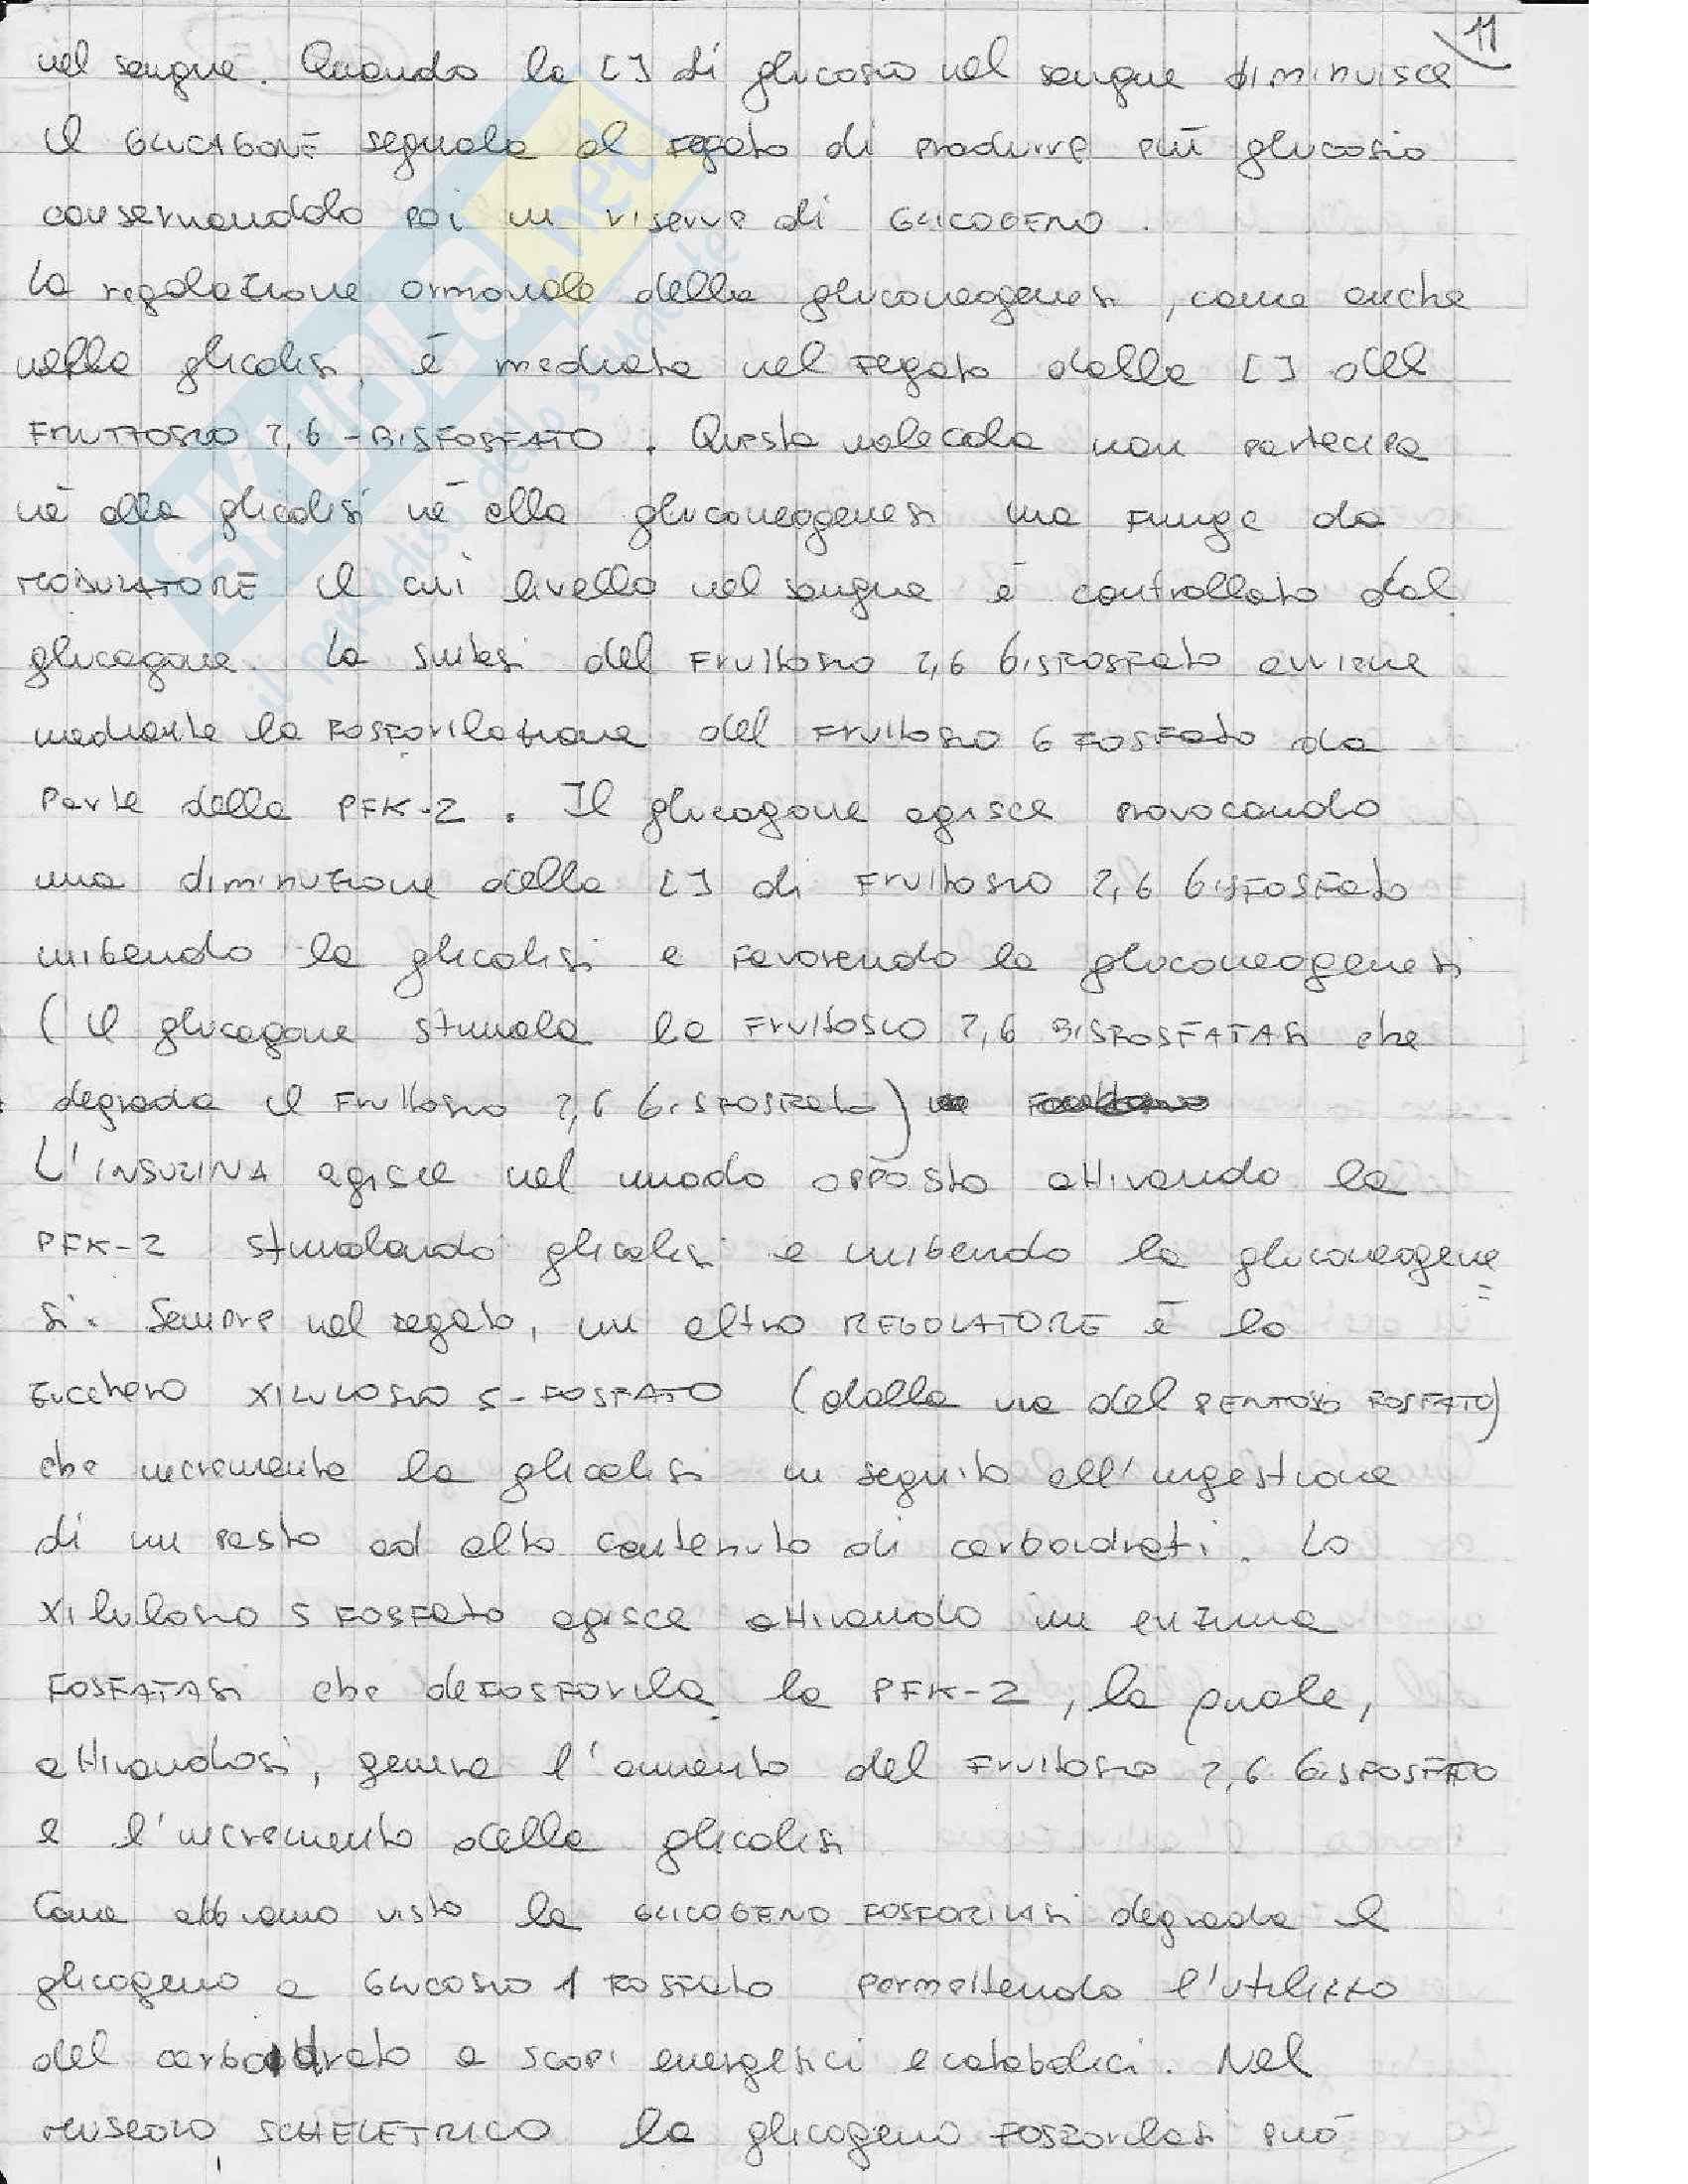 11
nel sangue. Quando la [ ] di glucosio nel sangue diminuisce
il GLUCAGONE segnala al fegato di produrre più glucosio
conservandolo poi in riserve di GLICOGENO.
La regolazione ormonale della gluconeogenesi, come anche
nella glicolisi, è mediata nel fegato dalla [ ] del
FRUTTOSIO 2,6-BISFOSFATO. Questa molecola non partecipa
nè alla glicolisi nè alla gluconeogenesi ma funge da
MODULATORE il cui livello nel sangue è controllato dal
glucagone. La sintesi del Fruttosio 2,6 bisfosfato avviene
mediante la fosforilazione del Fruttosio 6 fosfato da
parte della PFK-2. Il glucagone agisce provocando
una diminuzione della [ ] di Fruttosio 2,6 bisfosfato
inibendo la glicolisi e favorendo la gluconeogenesi
(il glucagone stimola la Fruttosio 2,6 BISFOSFATASI che
degrada il Fruttosio 2,6 bisfosfato)
L'INSULINA agisce nel modo opposto attivando la
PFK-2 stimolando glicolisi e inibendo la gluconeogene
si. Sempre nel fegato, un altro REGOLATORE è lo
zucchero XILULOSIO 5-FOSFATO (dalla via del PENTOSO FOSFATO)
che incrementa la glicolisi in seguito all'ingestione
di un pasto ad alto contenuto di carboidrati. Lo
xilulosio 5 fosfato agisce attivando un enzima
FOSFATASI che defosforila la PFK-2, la quale,
attivandosi, genera l'aumento del Fruttosio 2,6 bisfosfato
e l'incremento della glicolisi
Come abbiamo visto la GLICOGENO FOSFORILASI degrada il
glicogeno a Glucosio 1 fosfato permettendo l'utilizzo
del carboidrato a scopi energetici e catabolici. Nel
MUSCOLO SCHELETRICO la glicogeno fosforilasi può
SKUOLA.net
il paradiso dello studente